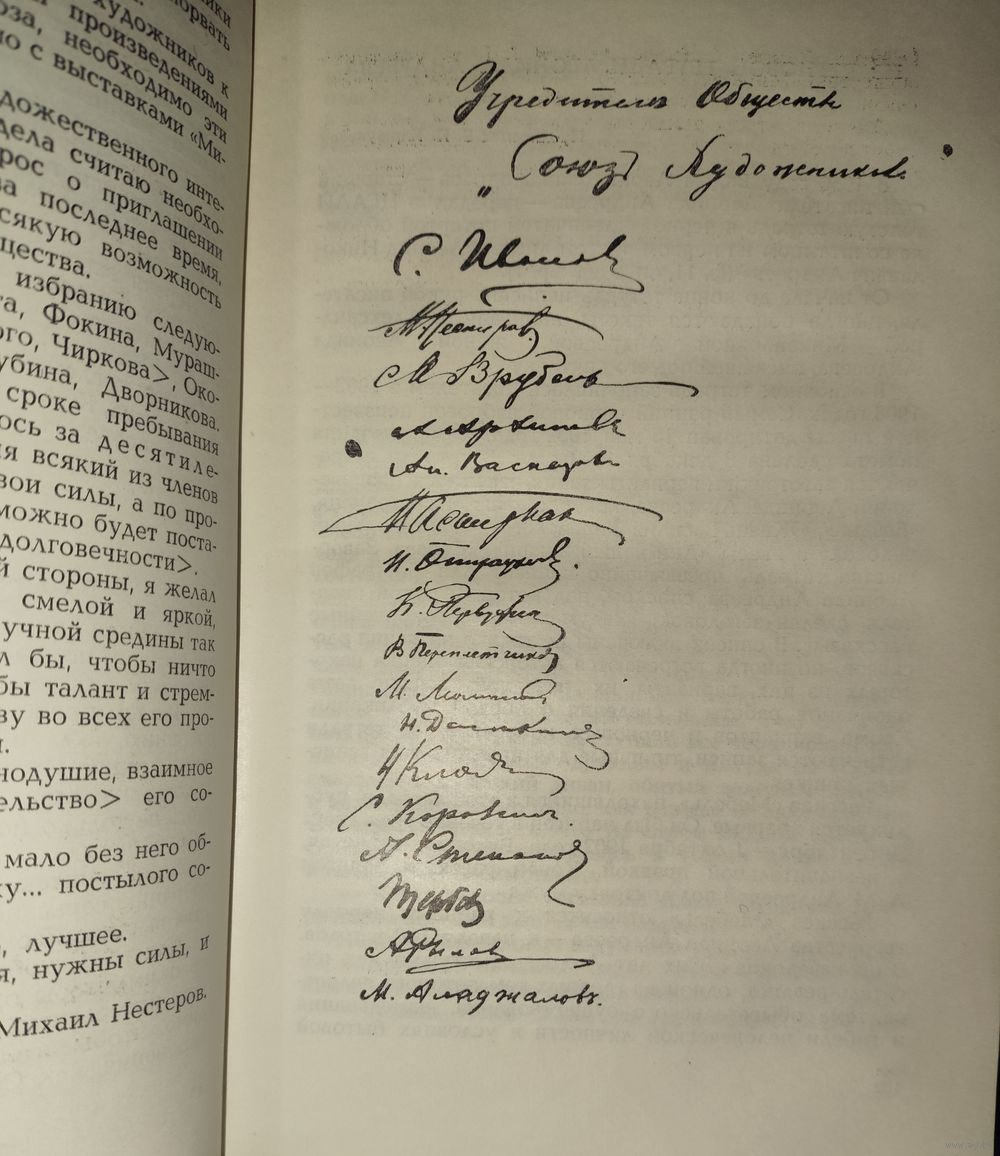 художников к
произведениями
оза, необходимо эти
но с выставками «Ми-
дожественного инте-
дела считаю необхо-
рос о приглашении
за последнее время,
сякую возможность
щества.
избранию следую-
та, Фокина, Мураш-
ого, Чиркова>, Око-
убина, Дворникова.
сроке пребывания
ось за десятиле-
ия всякий из членов
вои силы, а по про-
можно будет поста-
долговечности>.
й стороны, я желал
смелой и яркой,
учной средины так
л бы, чтобы ничто
бы талант и стрем-
ву во всех его про-
нодушие, взаимное
ельство> его со-
мало без него об-
ку... постылого со-
, лучшее.
я, нужны силы, и
Михаил Нестеров.
Учредители Общества
"Союзъ Художниковъ
С. Ивановъ
М. Нестеровъ
М Врубель
А Архиповъ
Ап. Васнецовъ
И. Остроуховъ
К. Первухин
В Переплетчиковъ
Н. Досекинъ
Н Клодтъ
С. Коровинъ.
А. Степановъ
Щербов
А Рылов
М. Аладжаловъ.